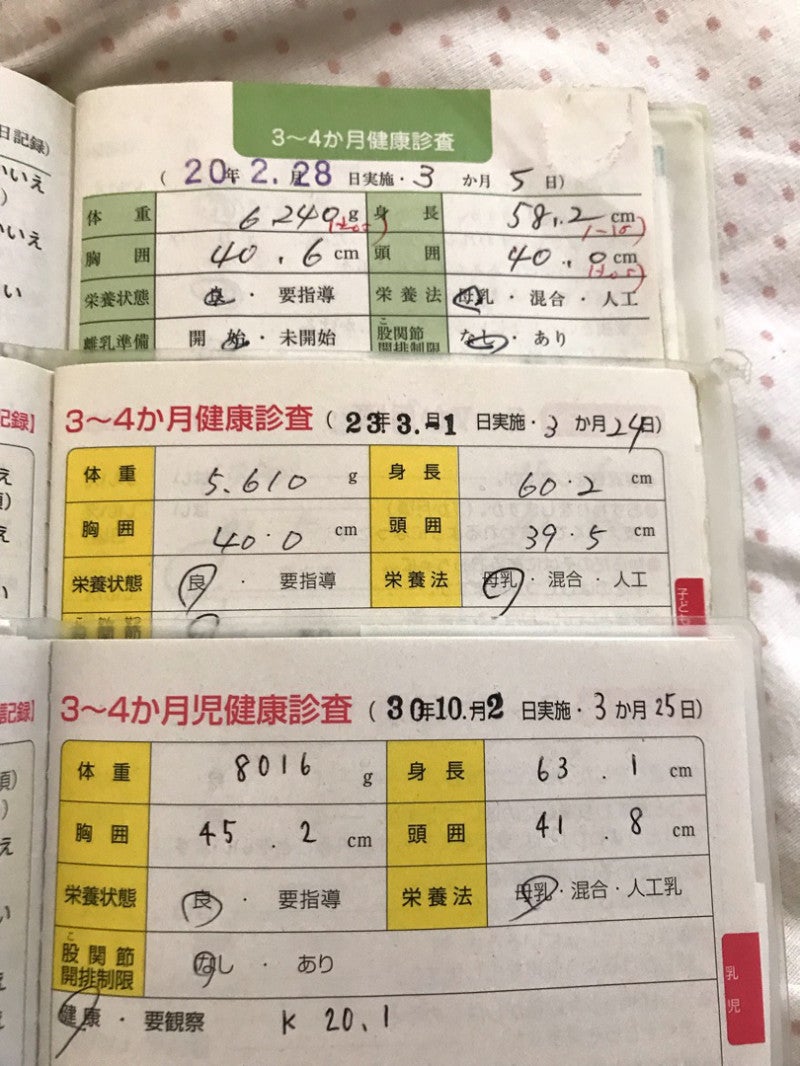 日記録)
いいえ
)
いいえ
い
3～4か月健康診査
( 20年 2.月28 日実施・3 か月 5 日)
体重 6.240g 身長 58.2cm
胸囲 40.6cm 頭囲 40.0cm
栄養状態 良・要指導 栄養法 母乳・混合・人工
離乳準備 開始・未開始 股関節開排制限 なし・あり
記録】
3～4か月健康診査 ( 23年3.月-1 日実施・3 か月24日)
体重 5.610 g 身長 60.2 cm
胸囲 40.0 cm 頭囲 39.5 cm
栄養状態 良・要指導 栄養法 母乳・混合・人工
子ど
記録】
3～4か月児健康診査 ( 30年10.月2 日実施・3か月25日)
体重 8016 g 身長 63.1 cm
胸囲 45.2 cm 頭囲 41.8 cm
栄養状態 良・要指導 栄養法 母乳・混合・人工乳
股関節開排制限 なし・あり
健康・要観察 K 20.1
乳児